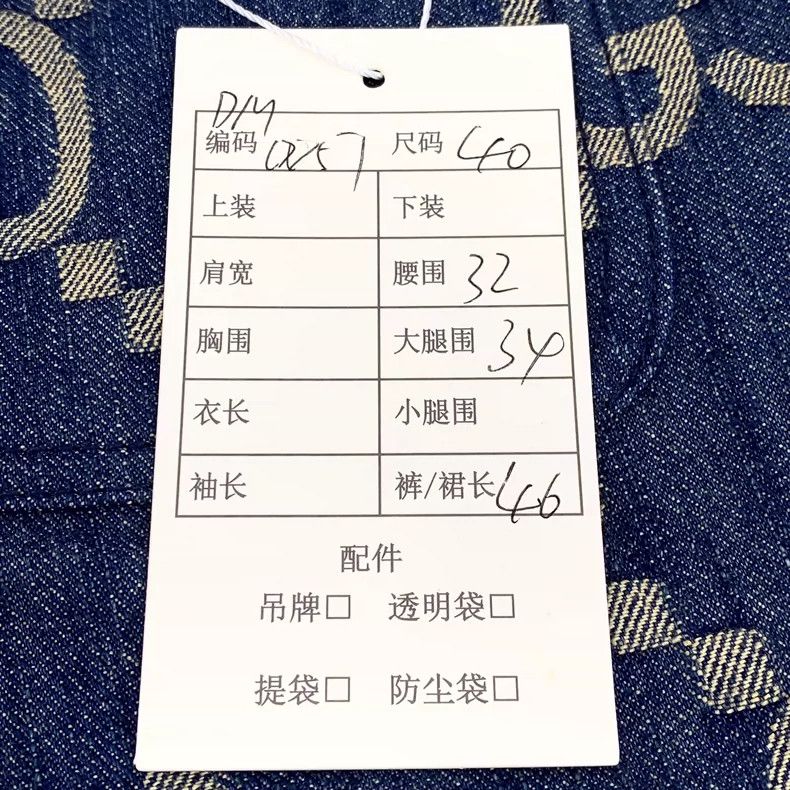 DIY
编码 尺码 40
上装 下装
肩宽 腰围 32
胸围 大腿围 34
衣长 小腿围
袖长 裤/裙长 46
配件
吊牌□ 透明袋□
提袋□ 防尘袋□